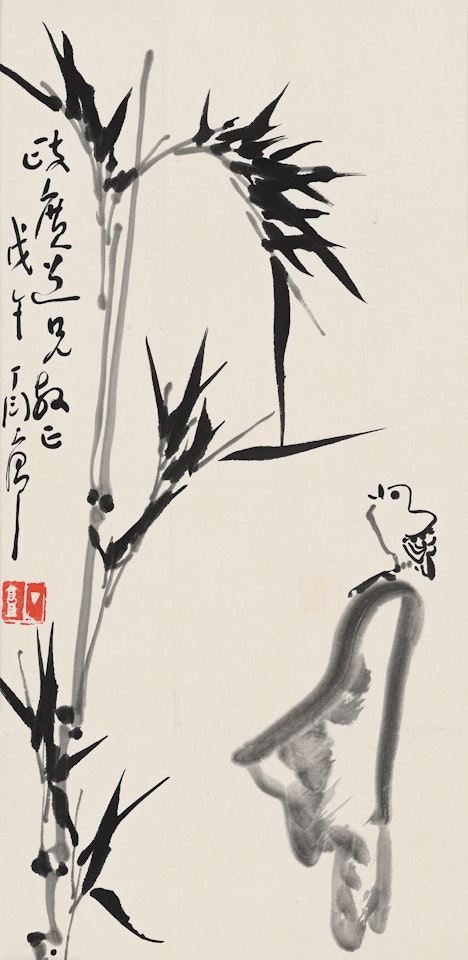 政廣道兄教正
戊午丁衍庸